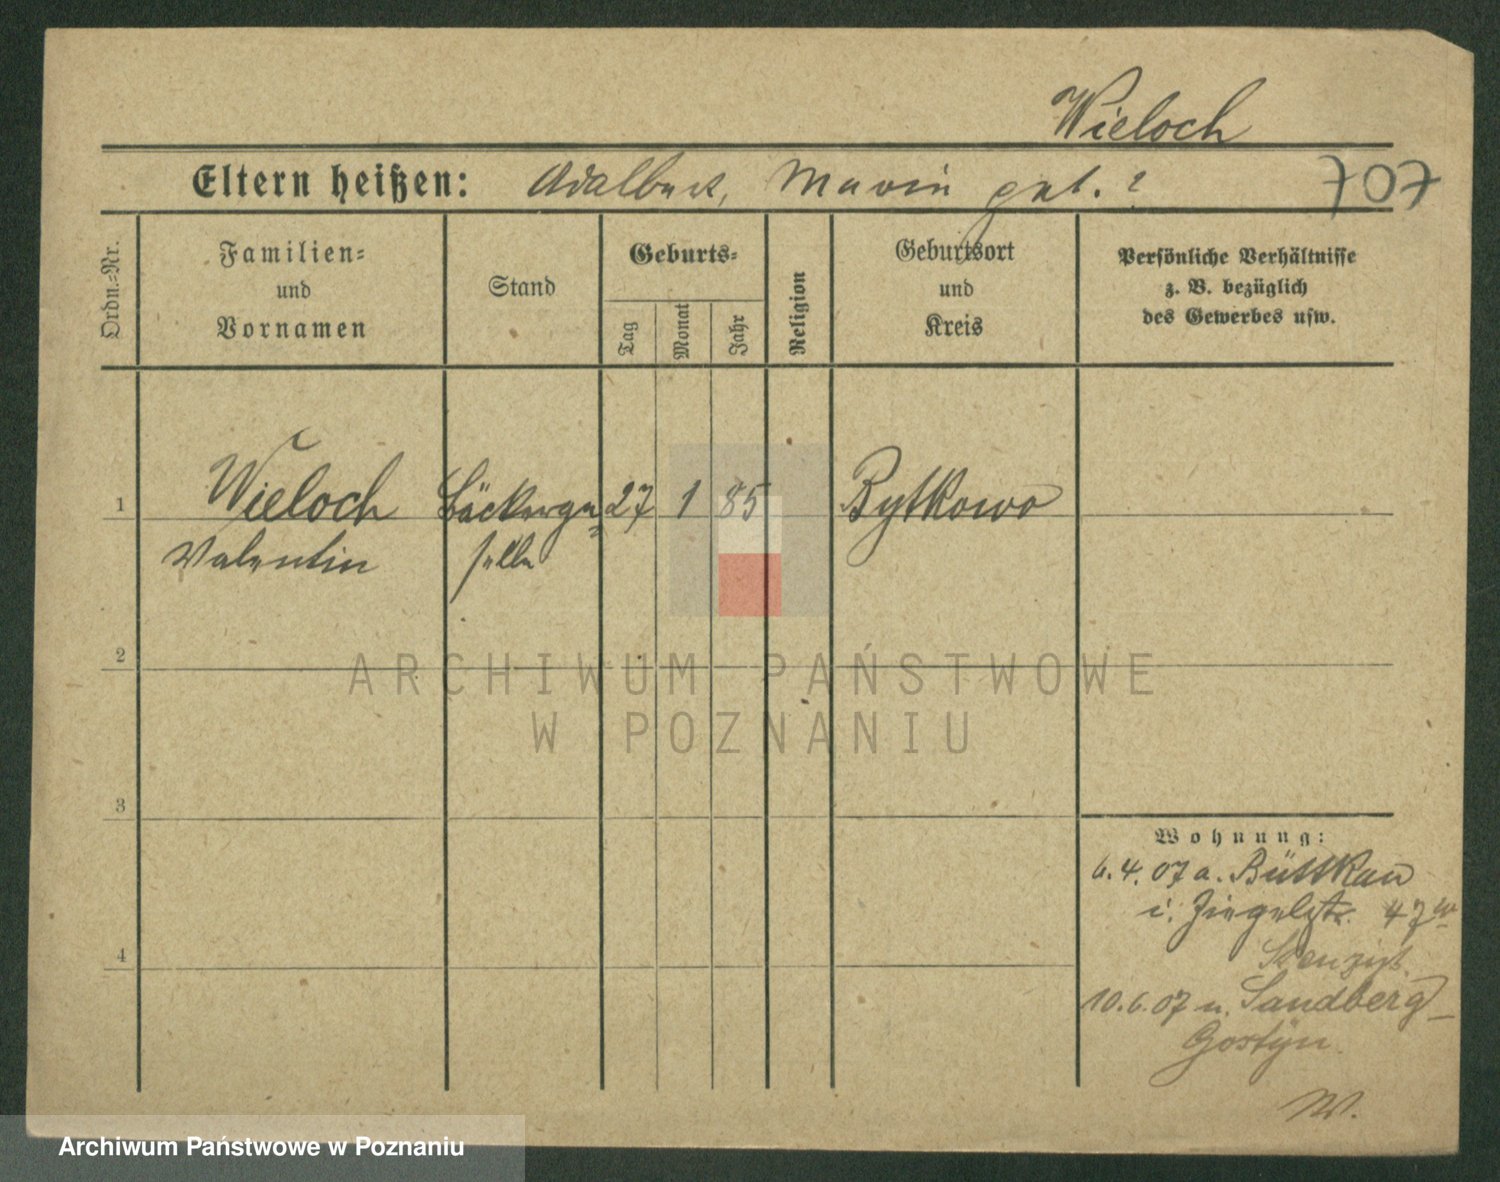 Wieloch
Eltern heißen: Adalbert, Marie geb. ?
707
Ordn.=Nr.
Familien=
und
Vornamen
Stand
Geburts=
Tag
Monat
Jahr
Religion
Geburtsort
und
Kreis
Persönliche Verhältnisse
z. B. bezüglich
des Gewerbes usw.
1 Wieloch Bäckerge= 27 1 85 Bytkowo
Valentin selle
2
3
4
Wohnung:
6.4.07 a. Büttkau
i. Ziegelstr. 47
10.6.07 n. Sandberg
Gostyn.
W.
ARCHIWUM PAŃSTWOWE
W POZNANIU
Archiwum Państwowe w Poznaniu